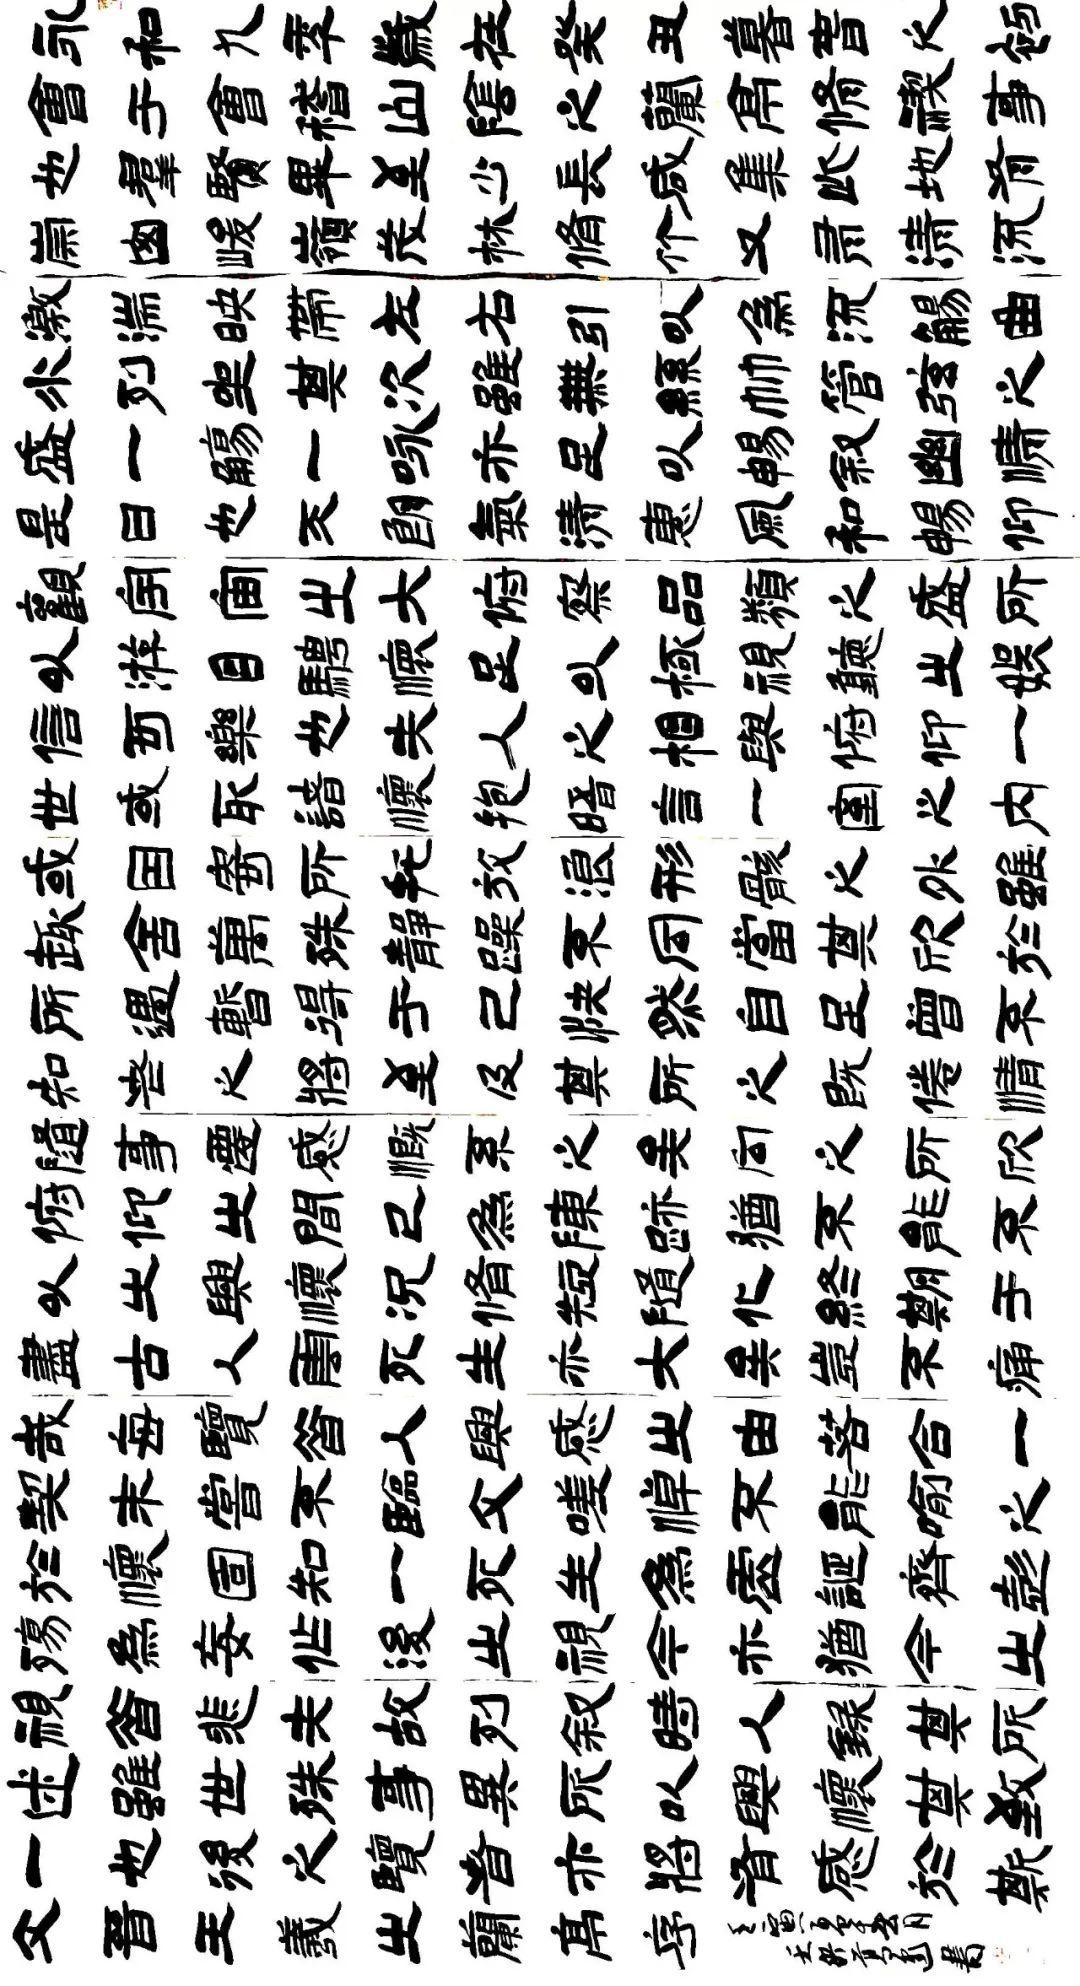 永和九年歲在癸丑暮春之初
會于會稽山陰之蘭亭修禊事
也羣賢畢至少長咸集此地有
崇山峻嶺茂林脩竹又有清流
激湍映帶左右引以為流觴曲
水列坐其次雖無絲竹管弦之
盛一觴一詠亦足以暢叙幽情
是日也天朗氣清惠風和暢仰
觀宇宙之大俯察品類之盛所
以游目騁懷足以極視聽之娛
信可樂也夫人之相與俯仰一
世或取諸懷抱晤言一室之內
或因寄所託放浪形骸之外雖
趣舍萬殊靜躁不同當其欣於
所遇暫得于己快然自足曾不
知老之將至及其所之既倦情
隨事遷感慨係之矣向之所欣
俯仰之間已為陳跡猶不能不
以之興懷況脩短隨化終期于
盡古人云死生亦大矣豈不痛
哉每覽昔人興感之由若合一
契未嘗不臨文嗟悼不能喻之
於懷固知一死生為虛誕齊彭
殤為妄作後之視今亦猶今之
視昔悲夫故列叙時人錄其所
述雖世殊事異所以興懷其致
一也後之覽者亦將有感於斯
文晉王羲之蘭亭序